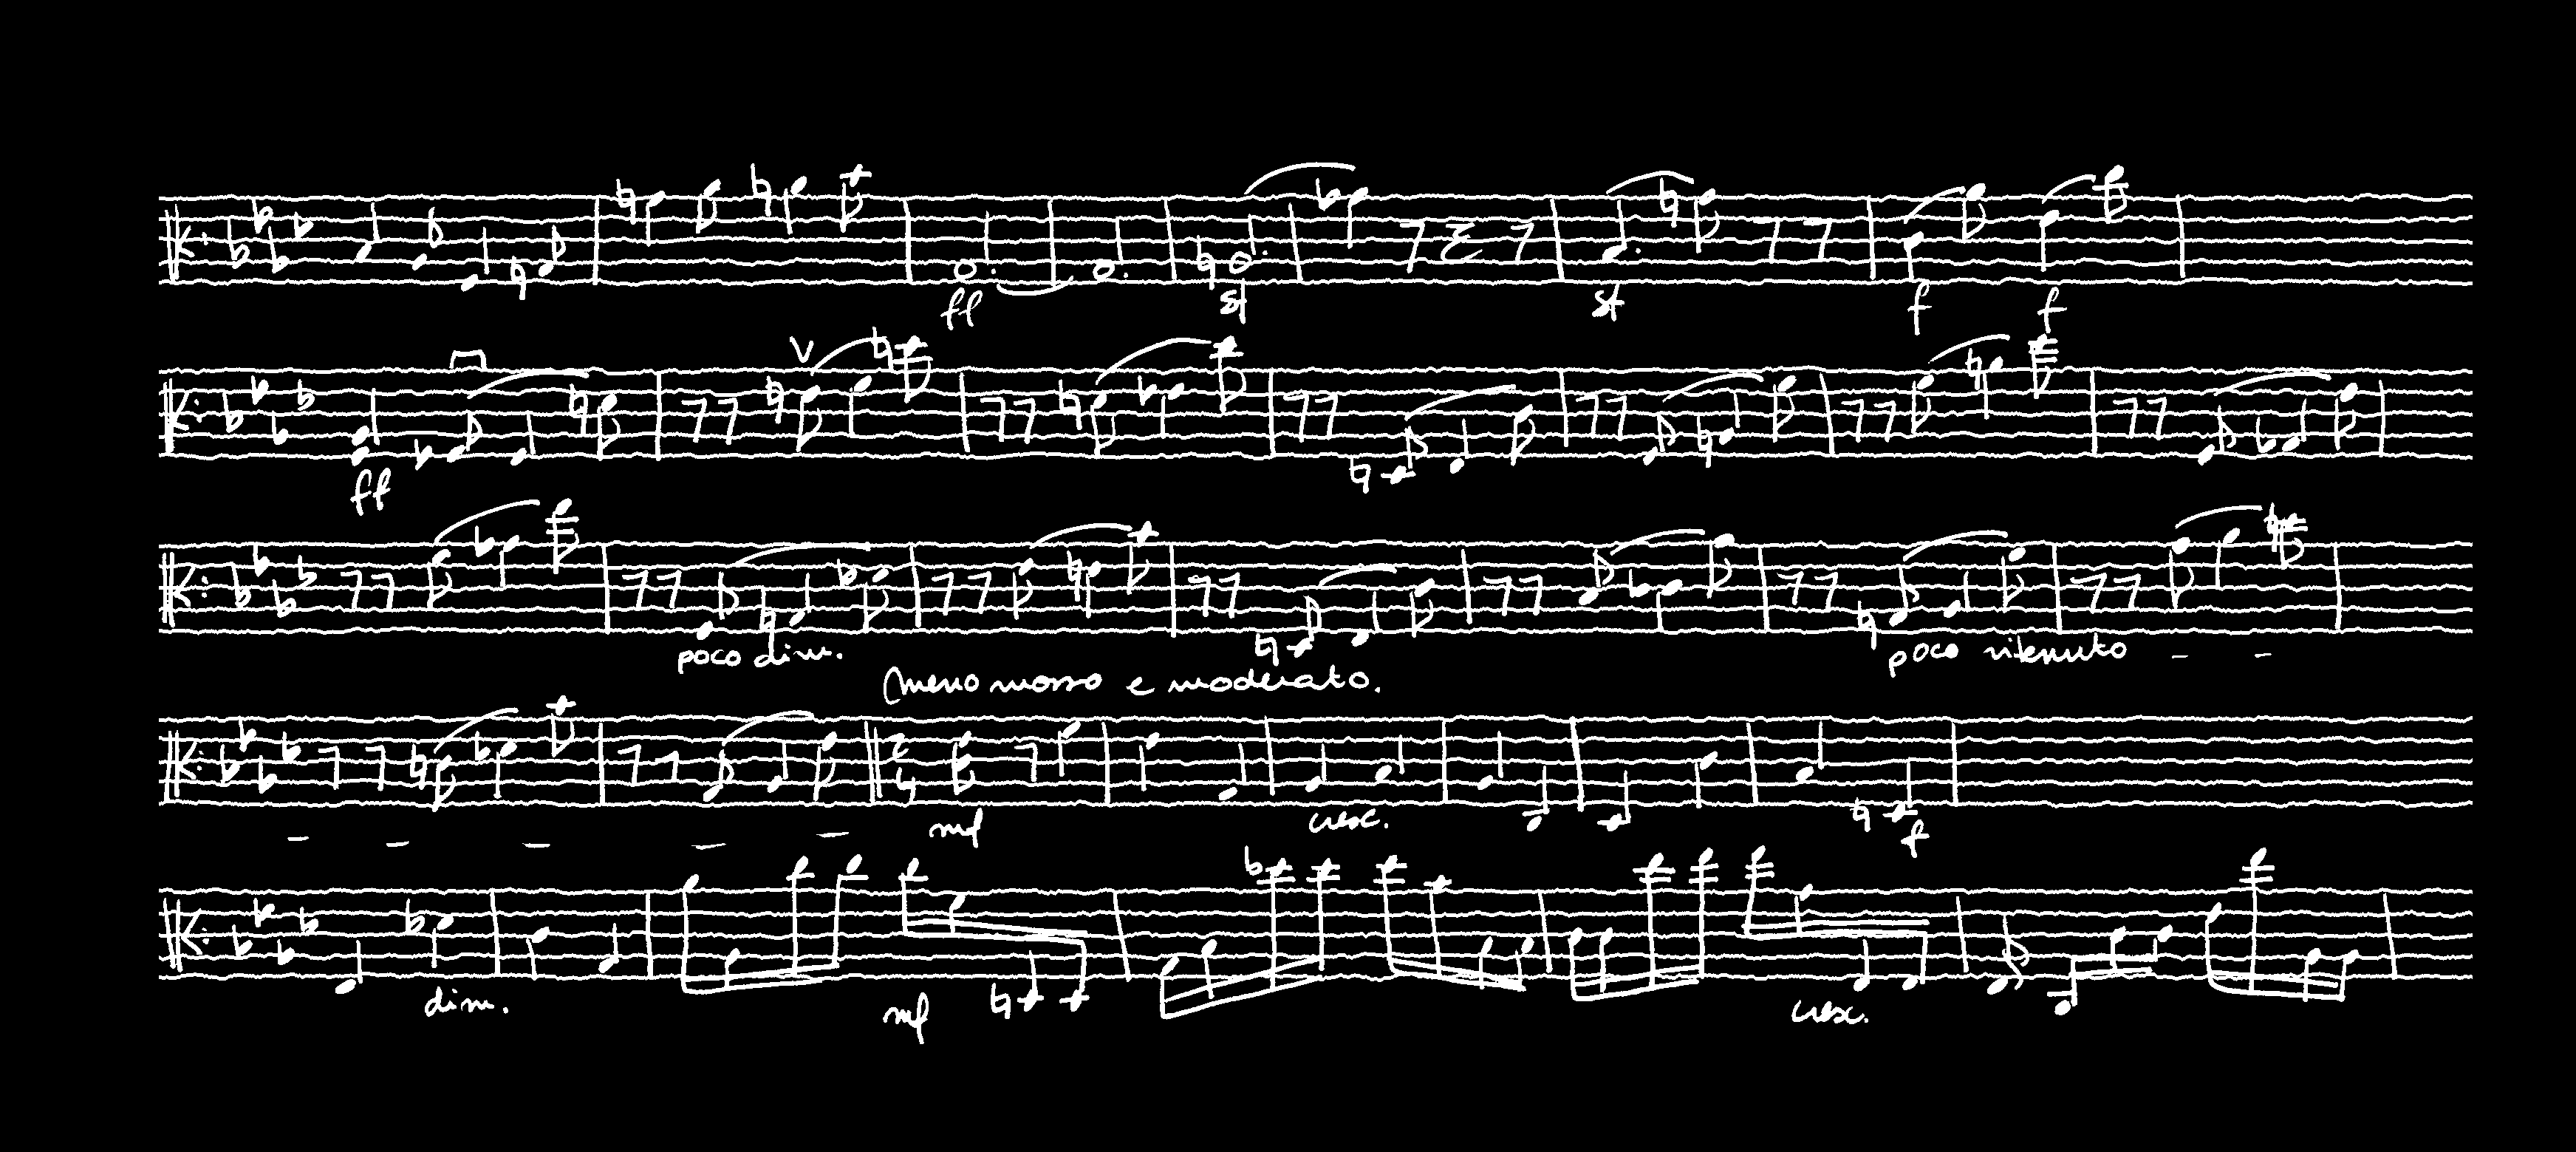 ff sf sf f f
ff
poco dim. poco ritenuto - -
Meno mosso e moderato.
- - - - - mf cresc. f
dim. mf cresc.